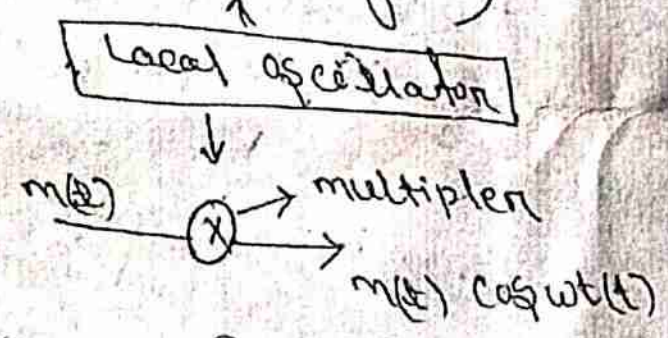 Local oscillator
m(t)
X
multipler
m(t) cosωt(t)